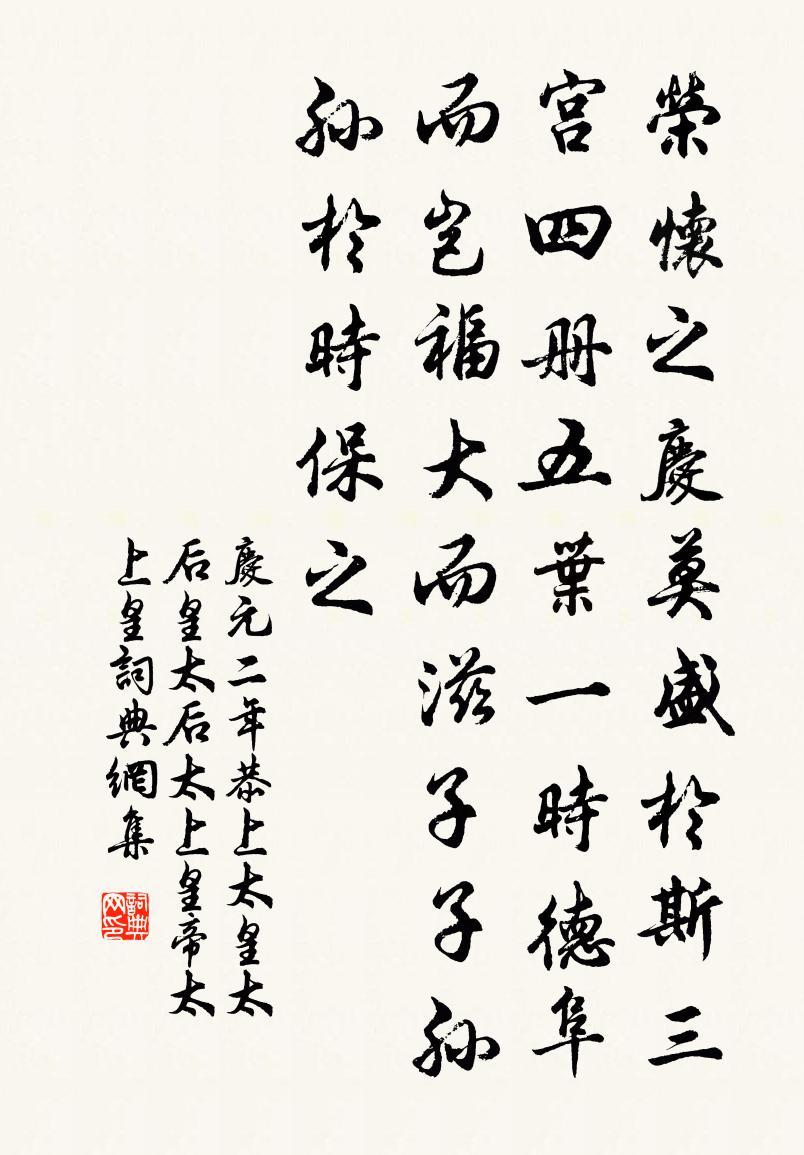 榮懷之慶莫盛於斯三
宮四册五葉一時德阜
而豈福大而滋子子孫
孫於時保之
慶元二年恭上太皇太
后皇太后太上皇帝太
上皇詞典網集
詞典网印